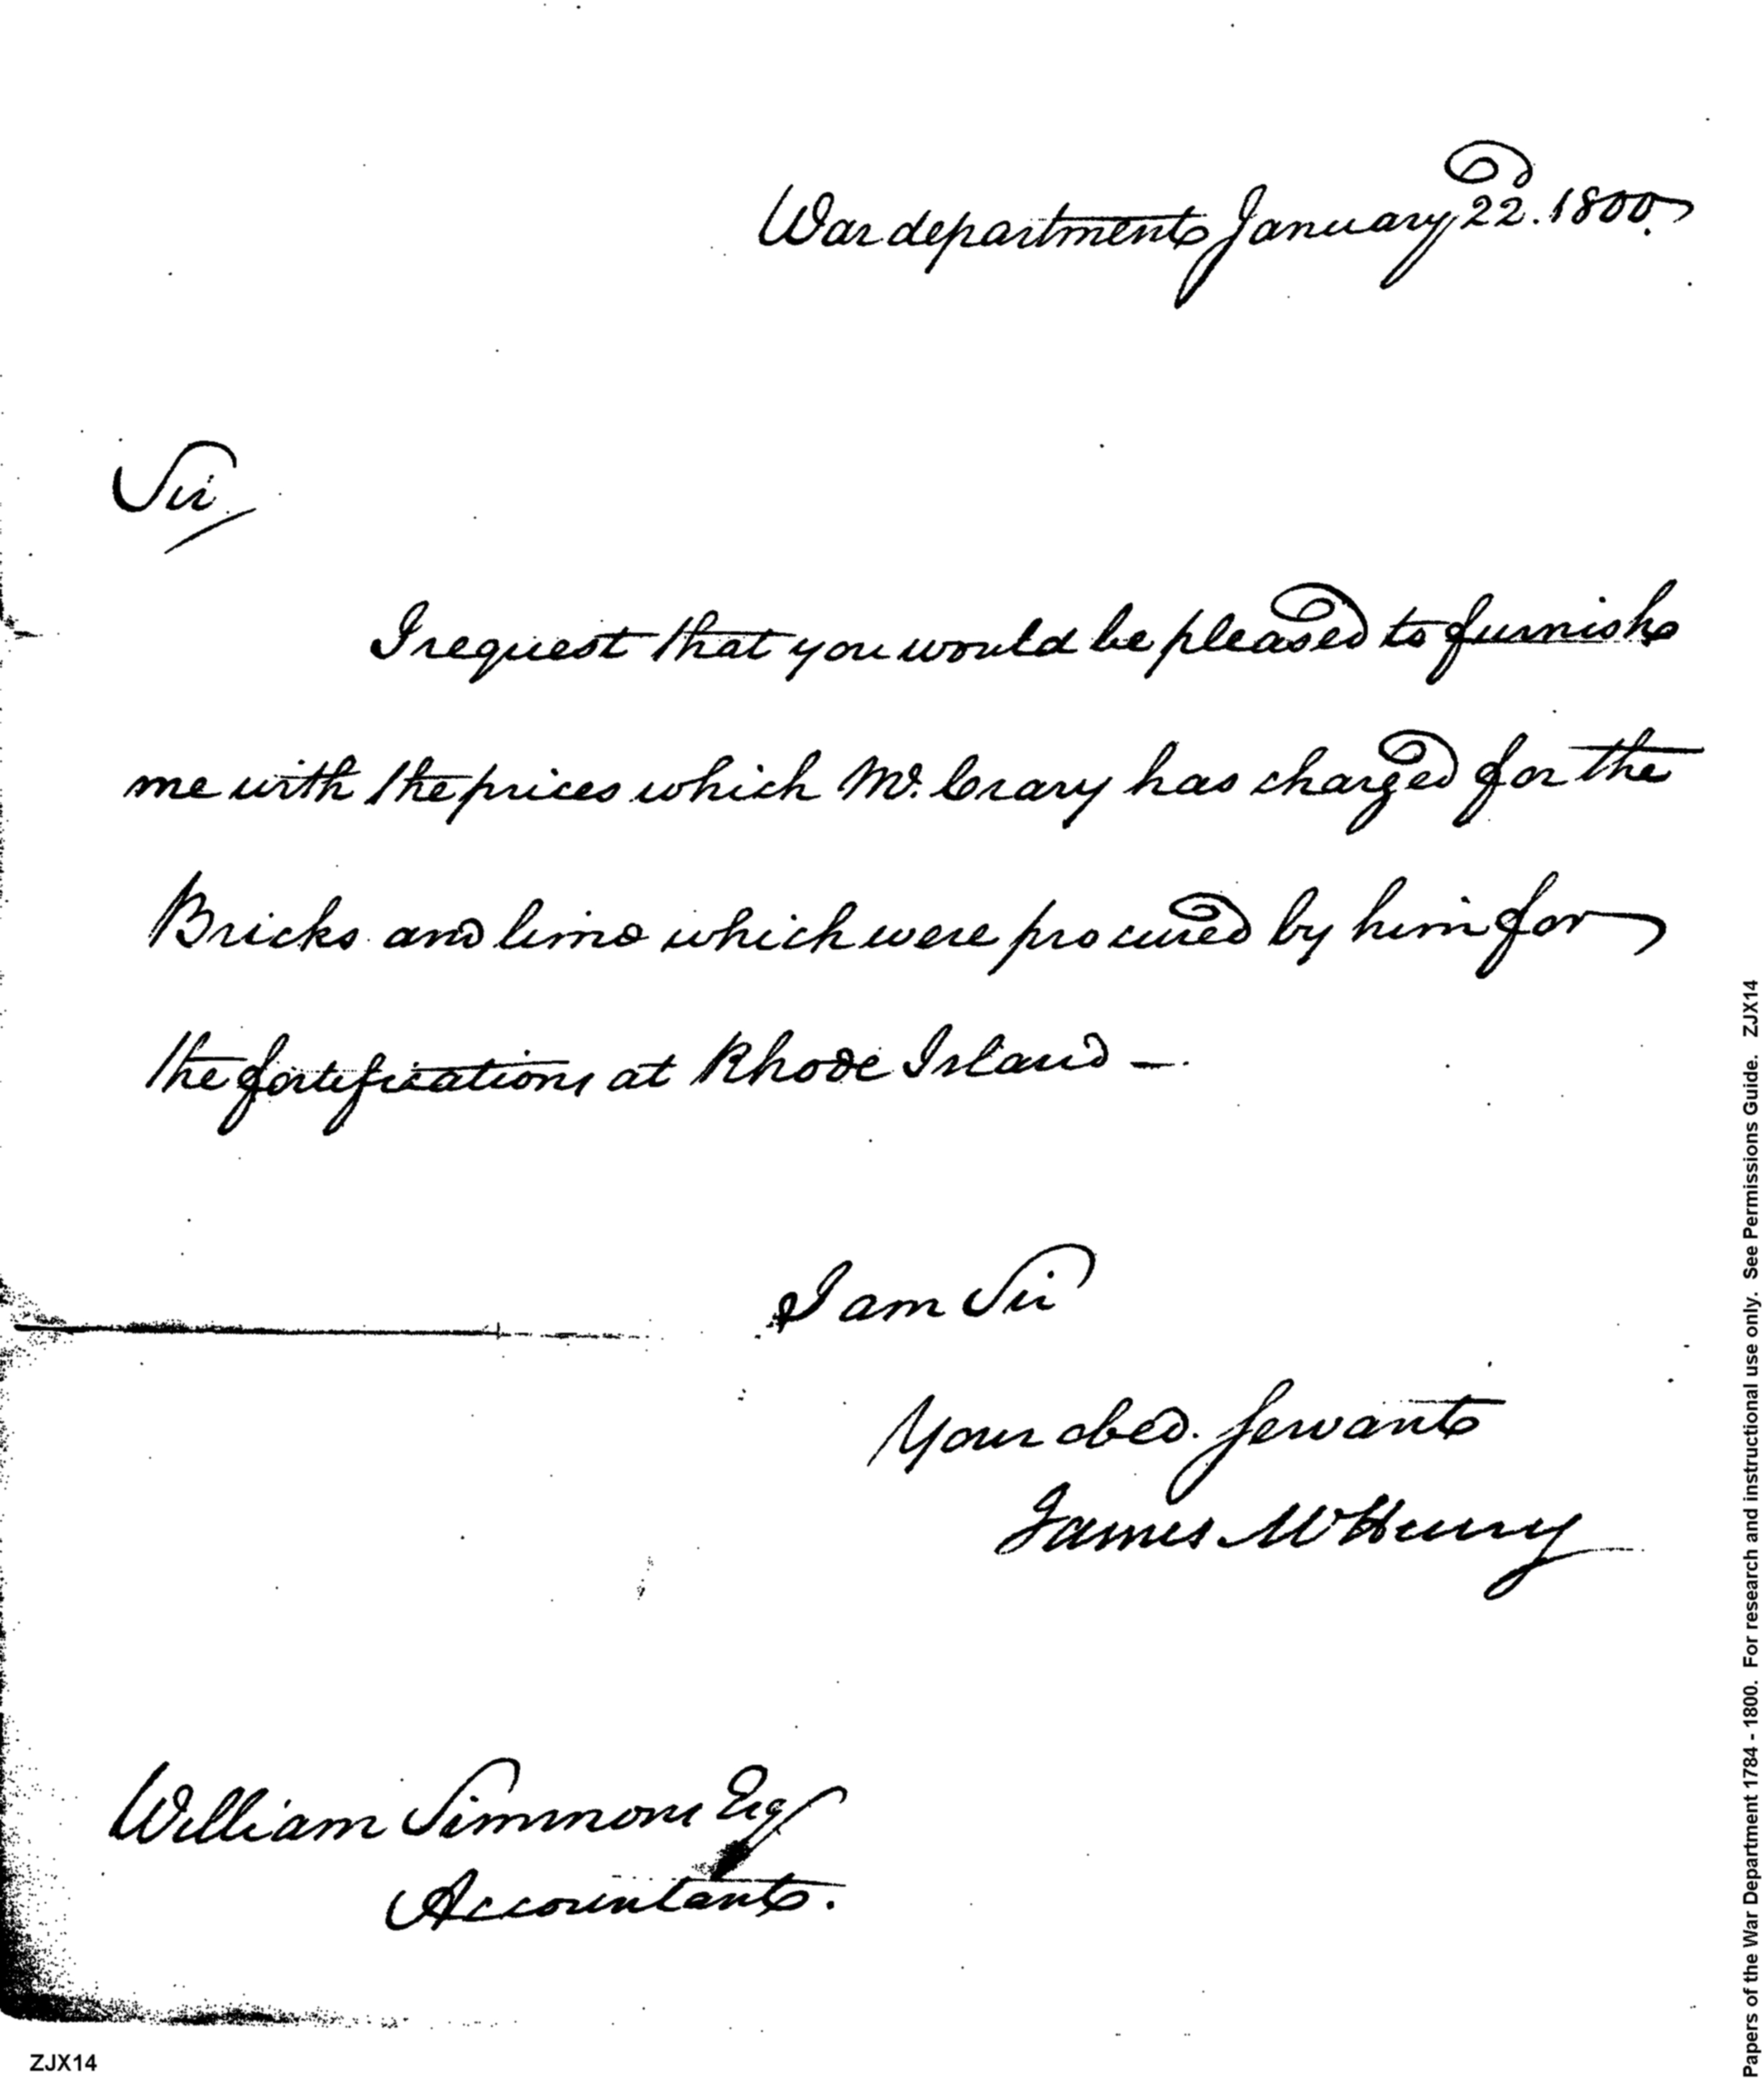 War department January 22d. 1800.
Sir
I request that you would be pleased to furnish
me with the prices which Mr. Crary has charged for the
Bricks and lime which were procured by him for
the fortifications at Rhode Island —
I am Sir
Your obed. servant
James McHenry
William Simmons Esq
Accountant.
ZJX14
Papers of the War Department 1784 - 1800. For research and instructional use only. See Permissions Guide. ZJX14